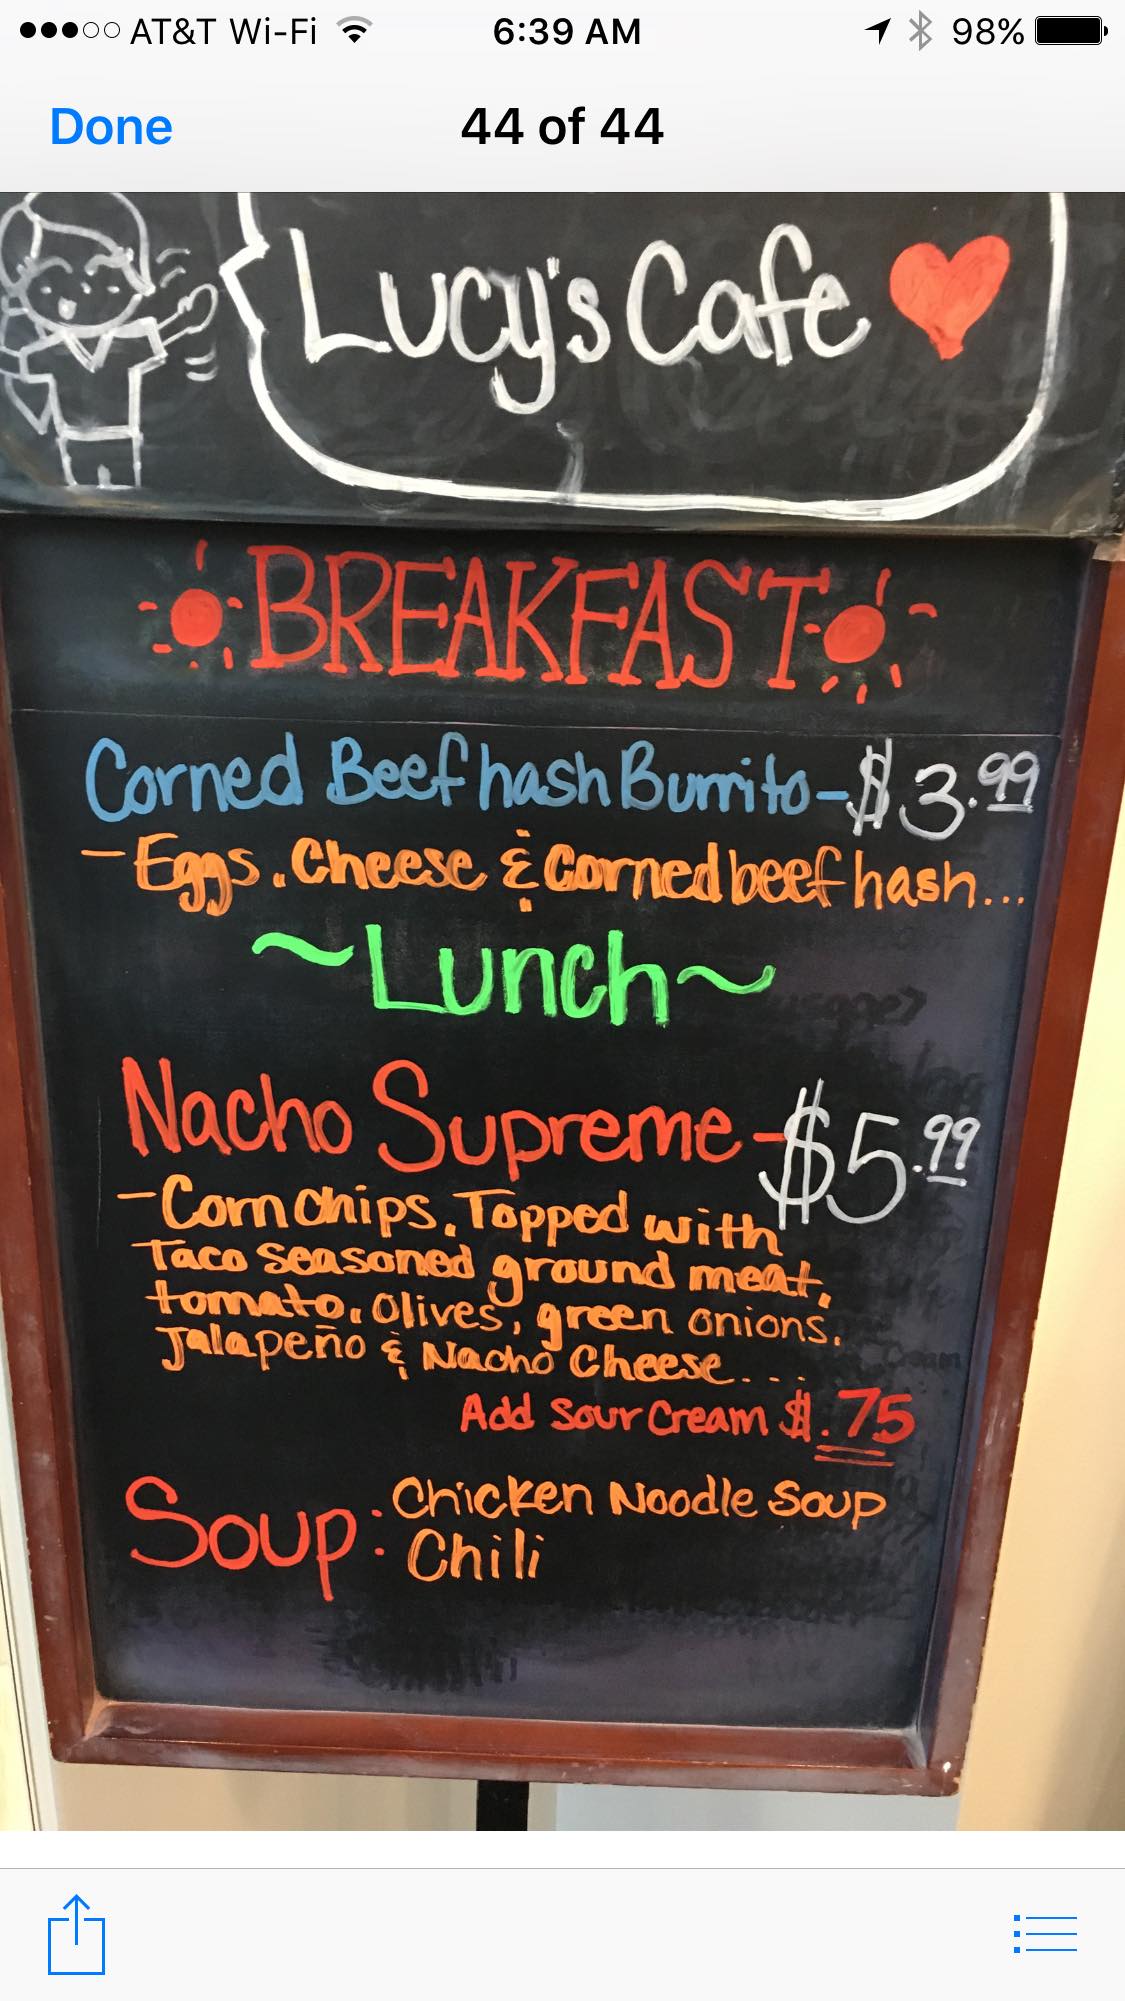 AT&T Wi-Fi 6:39 AM 98%
Done 44 of 44
Lucy's Cafe
BREAKFAST
Corned Beef hash Burrito - $3.99
- Eggs, Cheese & Corned beef hash...
~Lunch~
Nacho Supreme - $5.99
- Corn Chips, Topped with
Taco seasoned ground meat,
tomato, olives, green onions,
Jalapeño & Nacho Cheese....
Add Sour Cream $.75
Soup: Chicken Noodle Soup
Chili